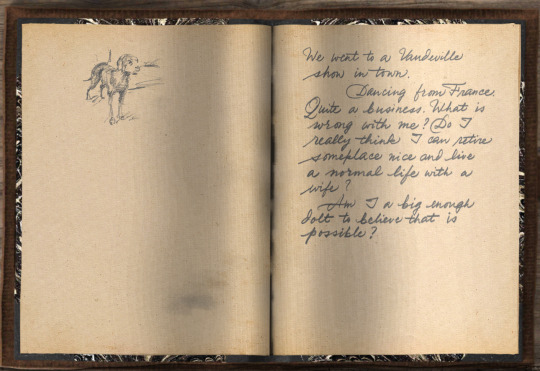 We went to a Vaudeville
show in town.
Dancing from France.
Quite a business. What is
wrong with me? Do I
really think I can retire
someplace nice and live
a normal life with a
wife?
Am I a big enough
dolt to believe that is
possible?